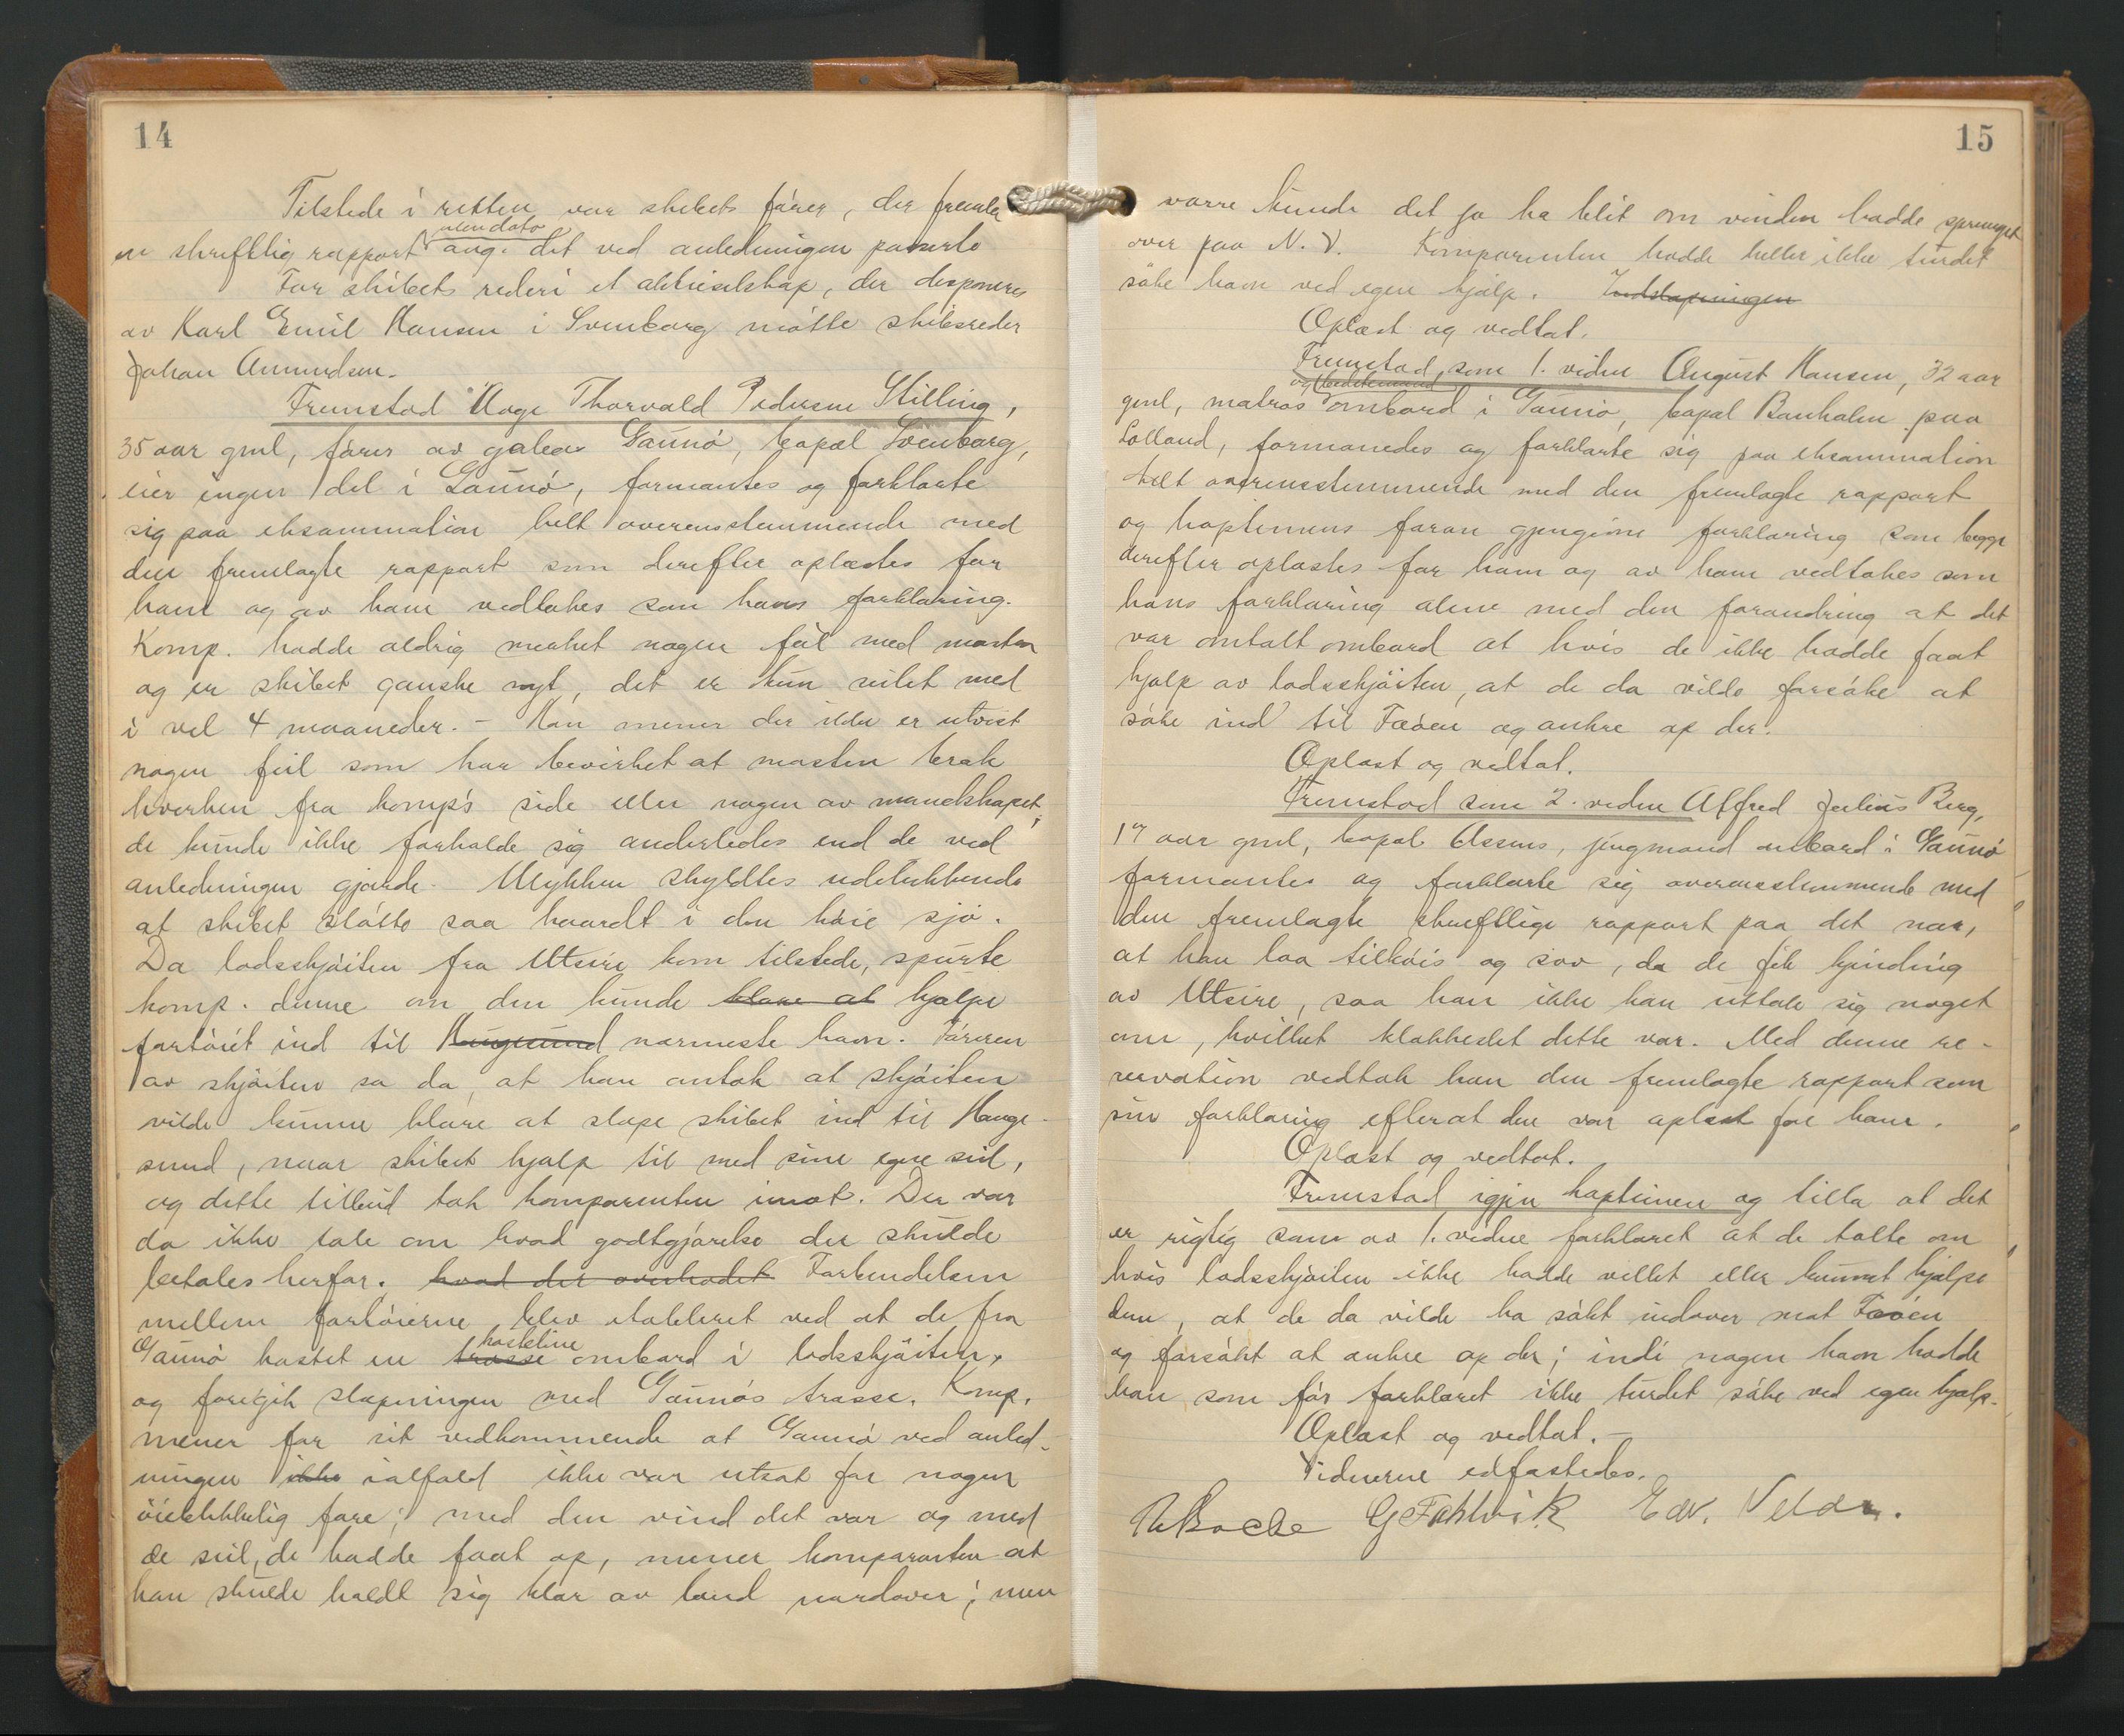 14
Tilstede i retten var skibets fører, der fremla
en skriftlig rapport uten dato ang. det ved anledningen passerte
For skibets rederi et aktieselskap, der disponeres
av Karl Emil Hansen i Svenborg møtte skibsreder
Johan Amundsen.
Fremstod Aage Thorvald Pedersen Stilling,
35 aar gml, fører av galeas Gaunø, bopæl Svenborg,
eier ingen del i Gaunø, formantes og forklarte
sig paa eksamination helt overensstemmende med
den fremlagte rapport som derefter oplæstes for
ham og av ham vedtokes som hans forklaring.
Komp. hadde aldrig merket nogen feil med masten
og er skibet ganske nyt, det er kun seilet med
i vel 4 maaneder. - Han mener der ikke er utvist
nogen feil som har bevirket at masten brak
hverken fra komp's side eller nogen av mandskapet,
de kunde ikke forholde sig anderledes end de ved
anledningen gjorde. Ulykken skyldtes udelukkende
at skibet støtte saa haardt i den høie sjø.
Da losskjøiten fra Utsire kom tilstede, spurte
komp. denne om den kunde klare at hjælpe
fartøiet ind til Haugesund nærmeste havn. Føreren
av skjøiten sa da, at han antok at skjøiten
vilde kunne klare at slæpe skibet ind til Hauge-
sund, naar skibet hjalp til med sine egne seil,
og dette tilbud tok komparenten imot. Der var
da ikke tale om hvad godtgjørelse der skulde
betales herfor. hvad der overhodet Forbindelsen
mellem fartøierne blev etableret ved at de fra
Gaunø kastet en trosse kasteline ombord i lodsskjøiten,
og foregik slæpningen med Gaunøs trosse. Komp.
mener for sit vedkommende at Gaunø ved anled-
ningen ikke ialfald ikke var utsat for nogen
øieblikkelig fare; med den vind det var og med
de seil, de hadde faat op, mener komparenten at
han skulde holdt sig klar av land nordover; men
15
værre kunde det jo ha blit om vinden hadde sprunget
over paa N.V. Komparenten hadde heller ikke turdet
søke havn ved egen hjælp. Indslæpningen
Oplæst og vedtat.
Fremstod som 1. vidne August Hansen, 32 aar
gml, matros og bedstemand ombord i Gaunø, bopæl Banholm paa
Lolland, formanedes og forklarte sig paa eksamination
helt overensstemmende med den fremlagte rapport
og kapteinens foran gjengivne forklaring som begge
derefter oplæstes for ham og av ham vedtokes som
hans forklaring alene med den forandring at det
var omtalt ombord at hvis de ikke hadde faat
hjælp av lodsskjøiten, at de da vilde forsøke at
søke ind til Feøen og ankre op der.
Oplæst og vedtat.
Fremstod som 2. vidne Alfred Julius Berg,
17 aar gml, bopæl Assens, jungmand ombord i Gaunø
formantes og forklarte sig overensstemmende med
den fremlagte skriftlige rapport paa det nær,
at han laa tilkøis og sov, da de fik kjending
av Utsire, saa han ikke kan uttale sig noget
om, hvilket klokkeslet dette var. Med denne re-
servation vedtok han den fremlagte rapport som
sin forklaring efterat den var oplæst for ham.
Oplæst og vedtat.
Fremstod igjen kapteinen og tilla at det
er rigtig som av 1. vidne forklaret at de talte om
hvis lodsskjøiten ikke hadde villet eller kunnet hjælpe
dem, at de da vilde ha søkt indover mot Feøen
og forsøkt at ankre op der; indi nogen havn hadde
han som før forklaret ikke turdet søke ved egen hjælp.
Oplæst og vedtat. -
Vidnerne edfæstedes.
G Fahlvik Edv. Velde.